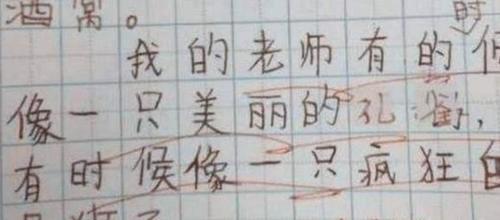 酒窝。
我的老师有的时候
像一只美丽的孔雀,
有时候像一只疯狂